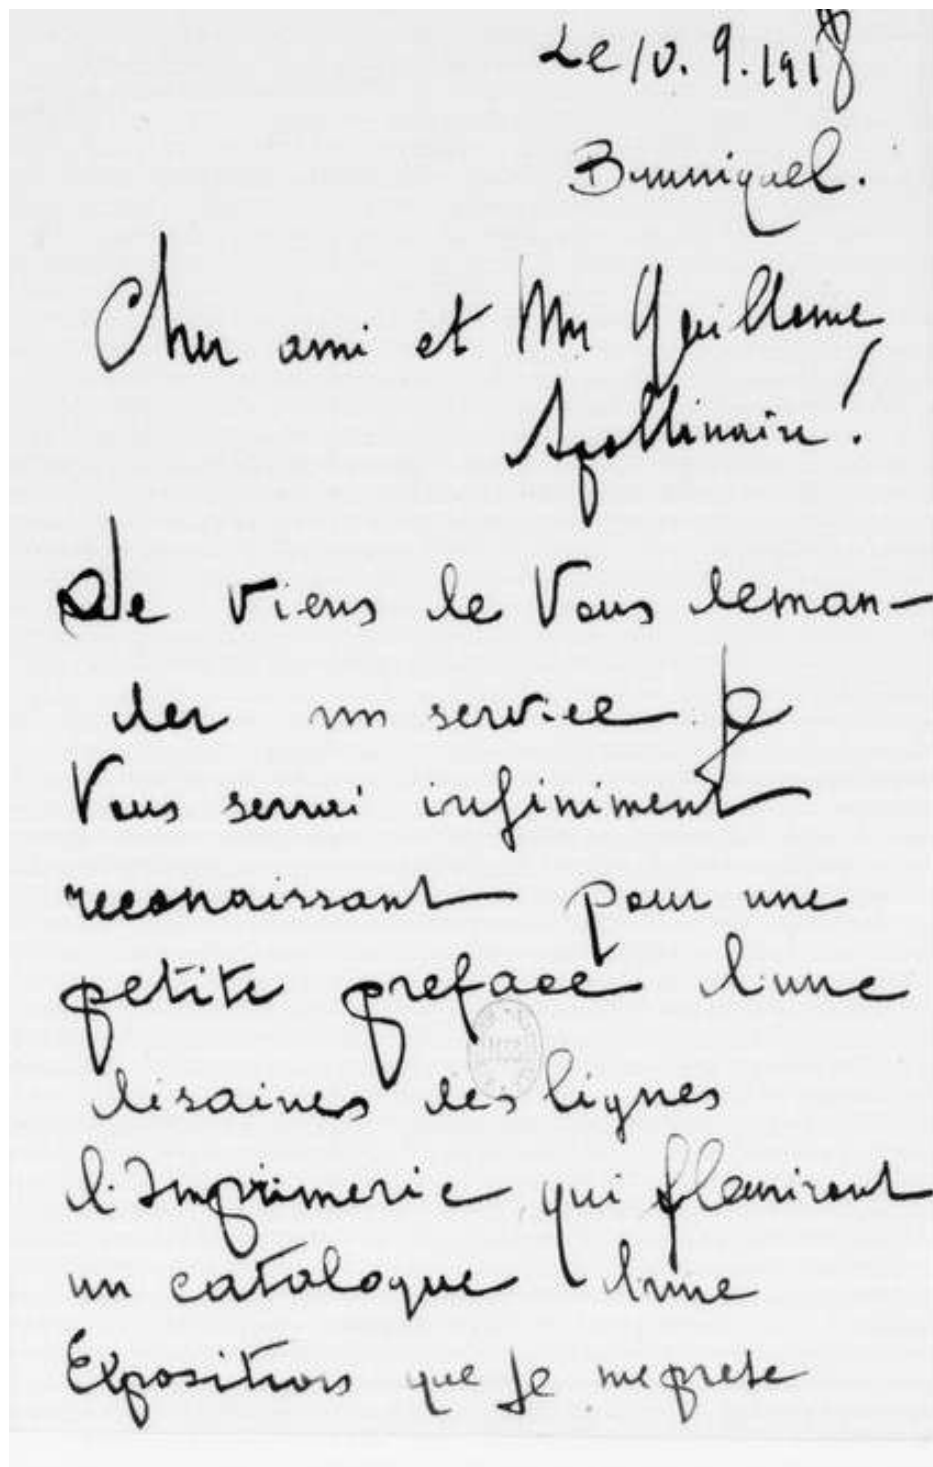 Le 10. 9. 1918
Bruniquel.
Cher ami et Mr Guillaume
Apollinaire!
Je viens de Vous deman-
der un service Je
Vous serrai infiniment
reconaissant pour une
petite preface d'une
disaines des lignes
d'Imprimerie qui fleuriront
un catalogue d'une
Expositions que je me prete